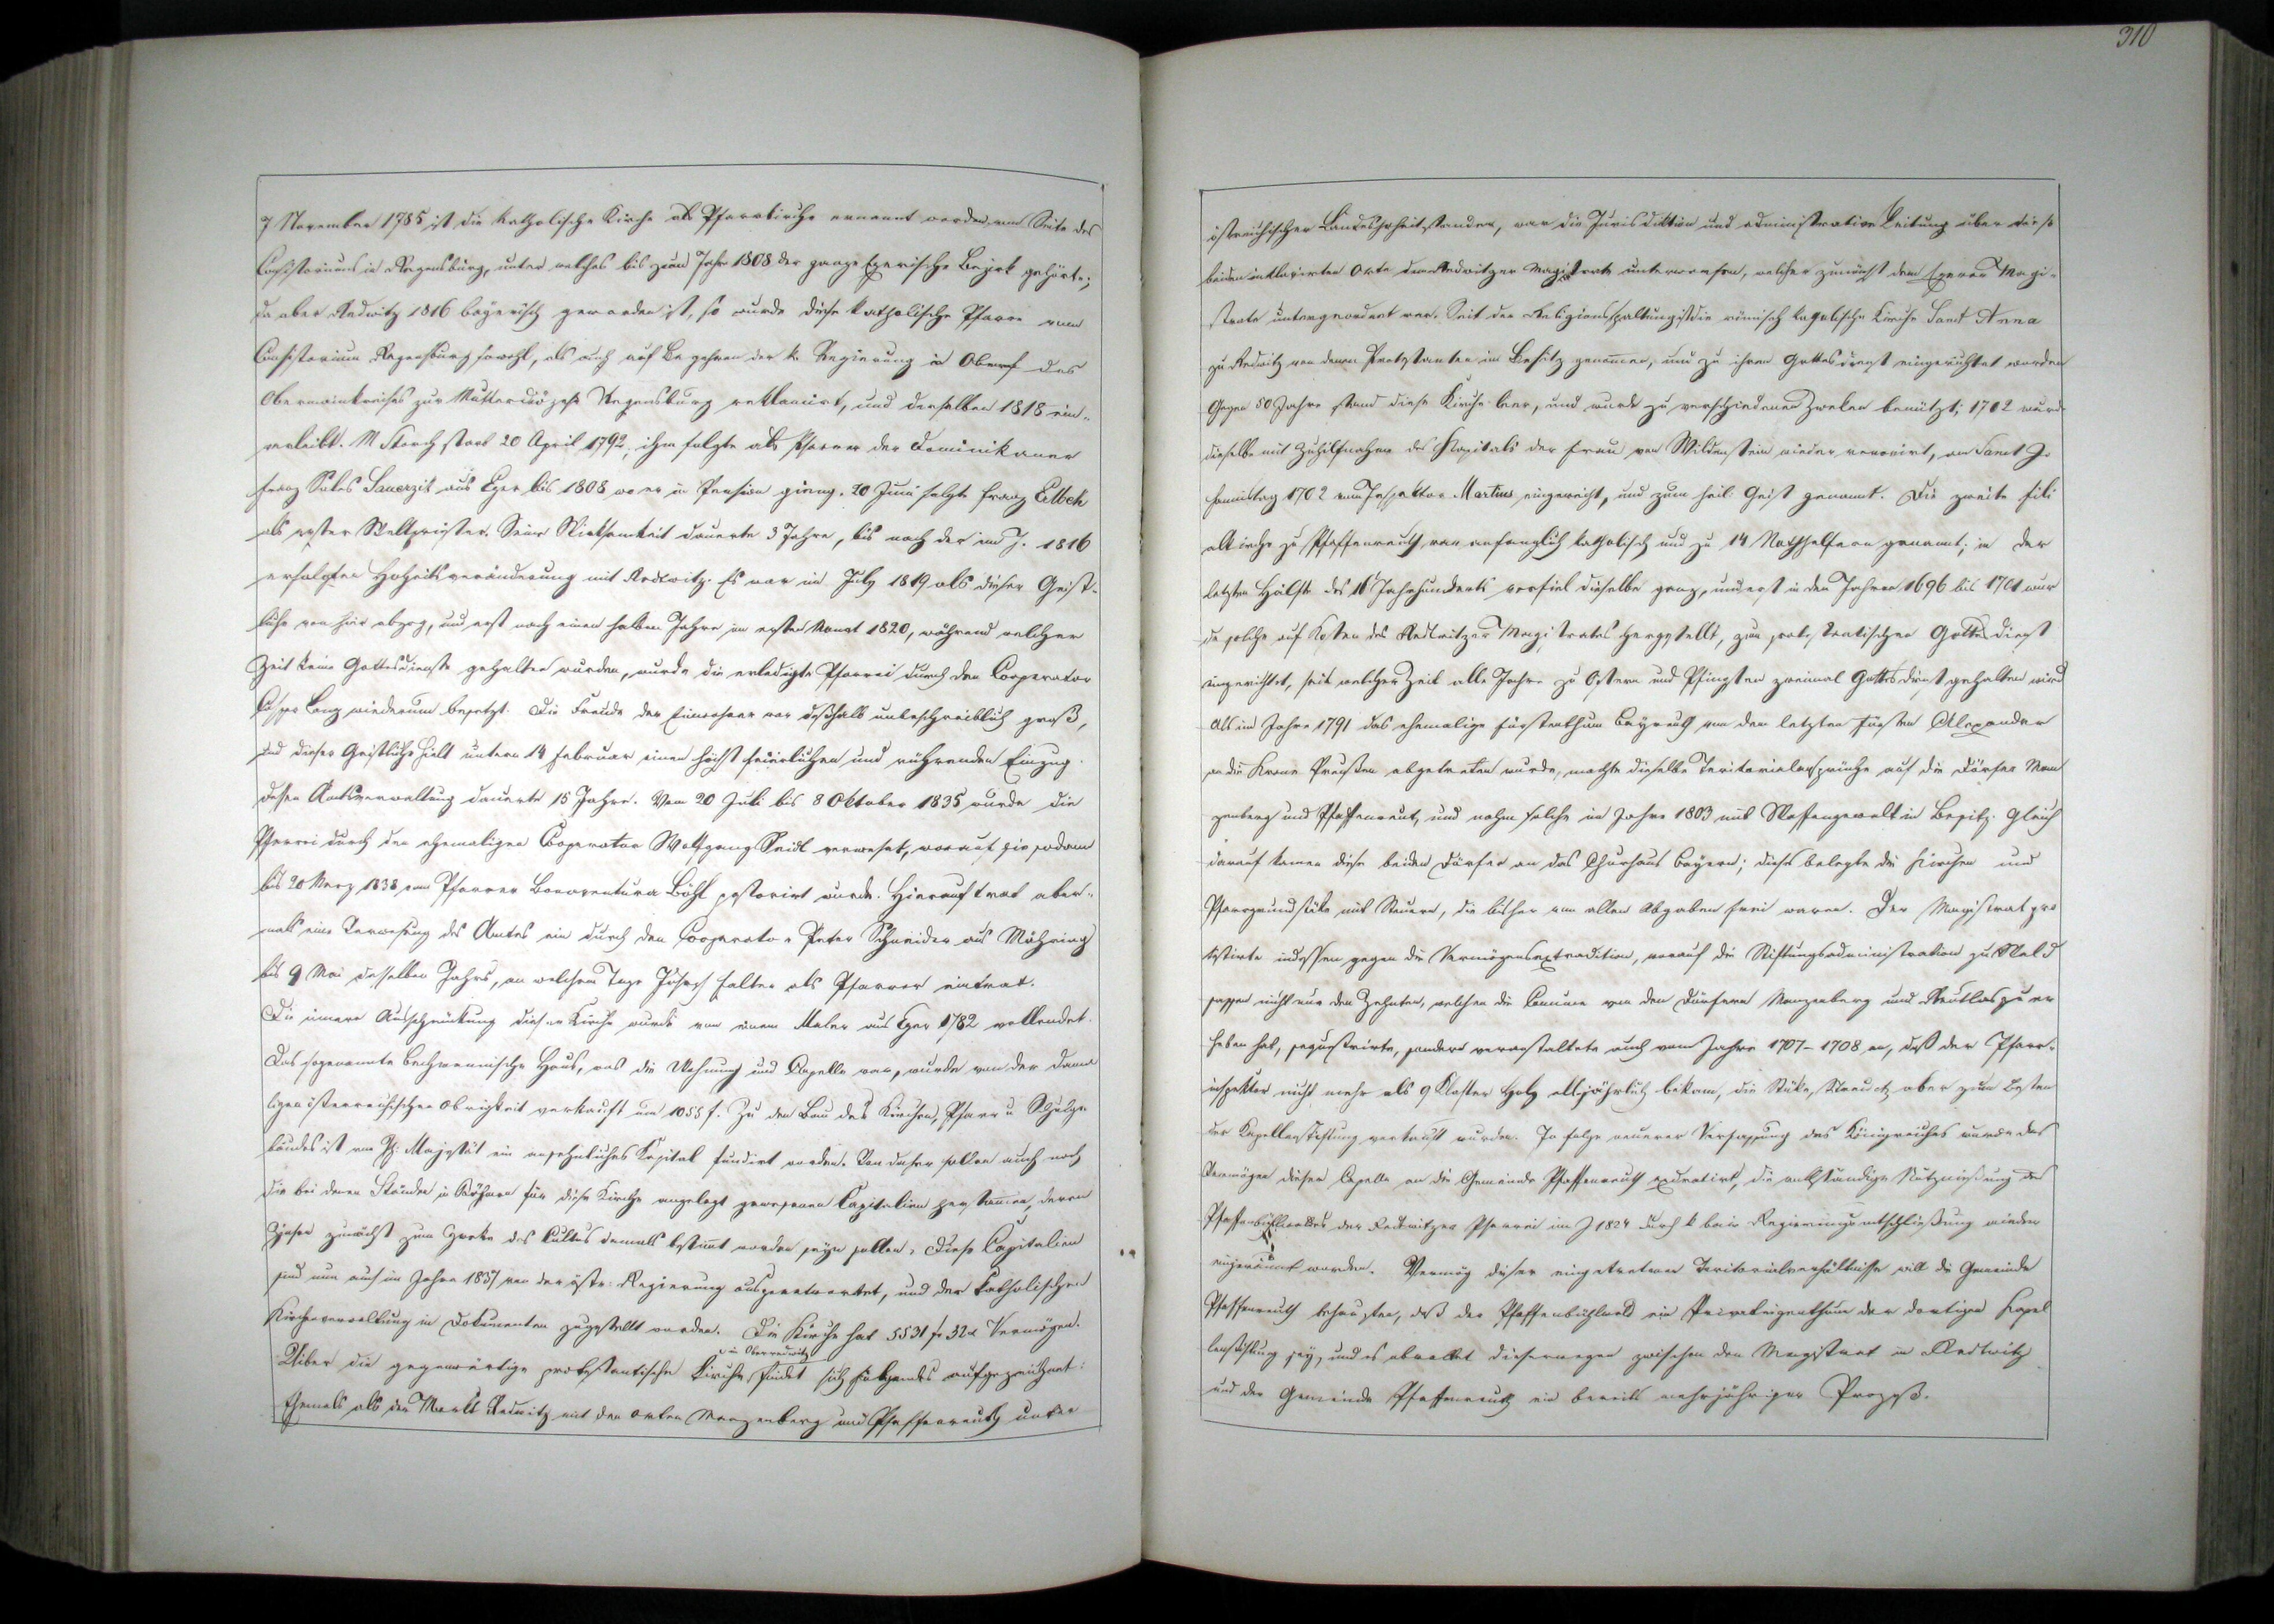 7 November 1785 ist die katholische Kirche als Pfarrkirche ernannt worden, von Seite des
Consistoriums in Regensburg, unter welches bis zum Jahr 1808 der ganze Egerische Bezirk gehörte;
da aber Redwitz 1816 bayerisch geworden ist, so wurde diese katholische Pfarre vom
Consistorium Regensburg sowohl, als auch auf Begehren der k. Regierung in des
Obermainkreises zur Mutterdiözese Regensburg reklamirt, und derselben 1818 ein-
verleibt. M Storch starb 20 April 1792, ihm folgte als Pfarrer der Dominikaner
Franz Sales Sauerzit aus Eger bis 1808 wo er in Pension gieng. 20 Juni folgte Franz Elbek
als erster Weltpriester. Seine Wirksamkeit dauerte 3 Jahre, bis nach der im J. 1816
erfolgten Hoheitsveränderung mit Redtwitz. Es war im July 1819 als dieser Geist-
liche von hier abzog, und erst nach einen halben Jahre im ersten Monat 1820, während welcher
Zeit keine Gottesdienste gehalten wurden, wurde die erledigte Pfarrei durch den Cooperator
Kaspar Lanz wiederum besetzt. Die Freude der Einwohner war deßhalb unbeschreiblich groß,
und dieser Geistliche hielt untern 14 Februar einen höchst feierlichen und rührenden Einzug.
dessen Amtsverwaltung dauerte 15 Jahre. Vom 20 Juli bis 8 Oktober 1835 wurde die
Pfarrei durch den ehemaligen Cooperator Wolfgang Seidl verweset, worauf sie sodann
bis 20 Merz 1838 vom Pfarrer Bonaventura Böhl pastorirt wurde. Hierauf trat aber-
mals eine Verwesung des Amtes ein durch den Cooperator Peter Schneider aus Mähring
bis 9 Mai desselben Jahrs, an welchem Tage Joseph Falter als Pfarrer eintrat.
Die innere Ausschmückung dieser Kirche wurde von einem Maler aus Eger 1782 vollendet.
Das sogenannte Haus, was die Wohnung und Capelle war, wurde von der dama
ligen österreichischen Obrigkeit verkauft um 1055 f. Zu dem Bau des Kirchen, Pfarr u Schulge
bäudes ist von Sr. Majestät ein ansehnliches Kapital fundirt worden. Von daher sollen auch noch
die bei denen Ständen in Böhmen für diese Kirche angelegt gewesenen Capitalien herstammen, deren
Zinsen zunächst zum Zweke des Cultus damals bestimmt worden seyn sollen. Diese Capitalien
sind nun auch im Jahre 1837 von der östr: Regierung ausgeantwortet, und der katholischen
Kirchenverwaltung in Dokumenten zugestellt worden. Die Kirche hat 5531 f 32 x Vermögen.
in Oberredwitz
Uiber die gegenwärtige protestantische Kirche findet sich folgendes aufgezeichnet:
Ehemals als der Markt Redwitz mit den Orten Manzenberg und Pfaffenreuth unter
310
östreichischer Landeshoheit standen, war die Jurisdiktion und administrative Leitung über diese
beiden inklavirten Orte dem Redwitzer Magistrate unterworfen, welcher zunächst dem Egerer Magi-
strate untergeordnet war. Seit der Religionsspaltung ist die römisch katholische Kirche Sanct Anna
zu Redwitz von denen Protestanten in Besitz genommen, und zu ihren Gottesdienst eingerichtet worden
Gegen 50 Jahre stand diese Kirche leer, und wurde zu verschiedenen Zweken benützt; 1702 wurd
dieselbe mit Zuhilfnahme des Kapitals der Frau von Wildenstein wieder renovirt, am Sanct Jo
hannistag 1702 vom Inspektor Martius eingeweiht, und zum heil. Geist genannt. Die zweite Fili
alkirche zu Pfaffenreuth war anfänglich katholisch und zu 14 Nothhelfern genannt; in der
letzten Hälfte des 16t Jahrhunderts verfiel dieselbe ganz, und erst in den Jahren 1696 bis 1701 wur
de solche auf Kosten des Redwitzer Magistrates hergestellt, zum protestantischen Gottesdienst
eingerichtet, seit welcher Zeit alle Jahre zu Ostern und Pfingsten zweimal Gottesdienst gehalten wird
Als im Jahre 1791 das ehemalige Fürstenthum Bayreuth von dem letzten Fürsten Alexander
an die Krone Preußen abgetreten wurde, machte dieselbe Teritorialansprüche auf die Dörfer Man
zenberg und Pfaffenreut, und nahm solche im Jahre 1803 mit Waffengewalt in Besitz. Gleich
darauf kamen diese beiden Dörfer an das Churhaus Bayern; dieses belegte die Kirchen und
Pfarrgrundstüke mit Steuern, die bisher von allen Abgaben frei waren. Der Magistrat pro
testirte indessen gegen die Vermögensextradition, worauf die Stiftungsadministration zu Wald
sassen nicht nur den Zehnten, welchen die Comune von den Dörfern Manzenberg und Reutlas zu er
heben hat, sequestrirte, sondern veranstaltete auch vom Jahre 1707-1708 an, daß der Pfarr-
inspektor nicht mehr als 9 Klafter Holz alljährlich bekam, die Stöke, Streu etz aber zum Besten
der Kapellenstiftung verkauft wurden. In Folge neuerer Verfassung des Königreiches wurde das
Vermögen dieser Capelle an die Gemeinde Pfaffenreuth extradirt, die vollständige Nutznießung des
Pfaffenbühlwaldes der Redwitzer Pfarrei im J 1824 durch k bair Regierungsentschließung wieder
eingeräumt worden. Vermög dieser eingetretenen Teritorialverhältnisse will die Gemeinde
Pfaffenreuth behaupten, daß der Pfaffenbühlwald ein Privateigenthum der dortigen Kapel
lenstiftung sey, und es obwaltet dieserwegen zwischen den Magistrat in Redtwitz
und der Gemeinde Pfaffenreuth ein bereits mehrjähriger Prozeß.